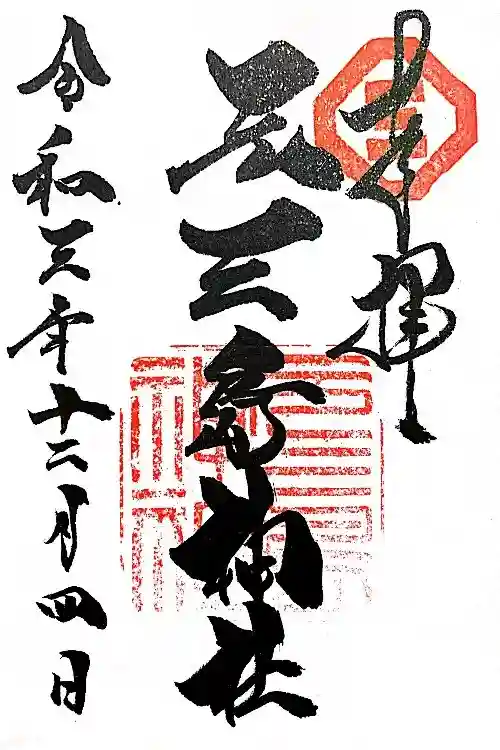 奉拝
元三島神社
令和三年十二月四日